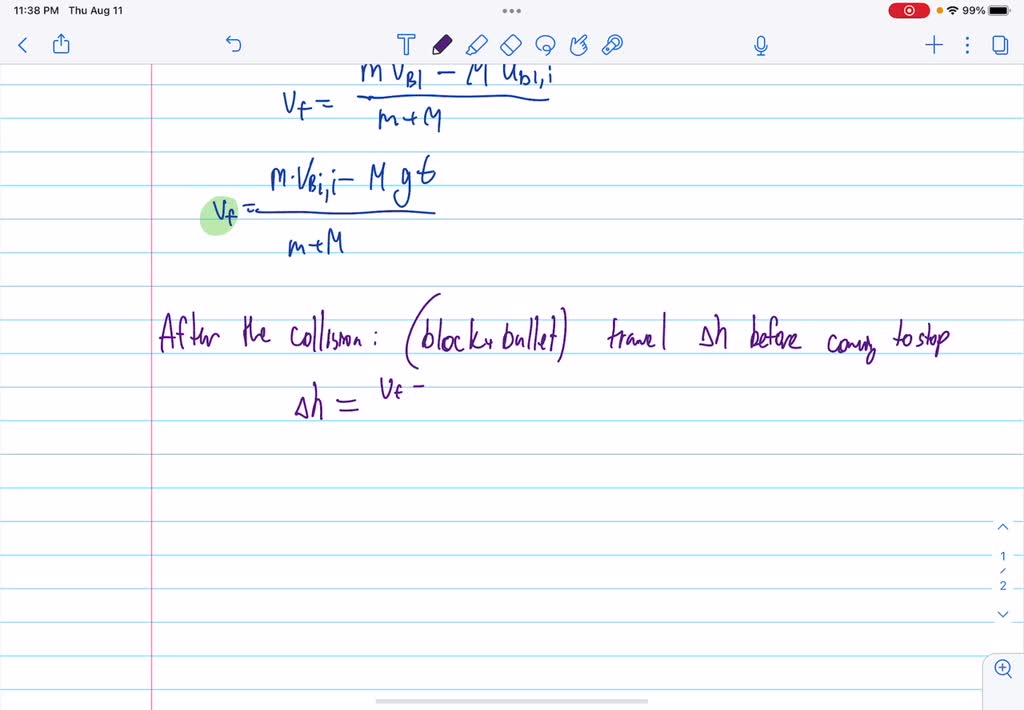 11:38 PM Thu Aug 11
99%
m V_B1 - M U_b1,i
V_f =
m+M
m·V_Bi,i - M g t
V_f =
m+M
After the collision: (block + bullet) travel Δh before coming to stop
Δh = V_f -
1
/
2